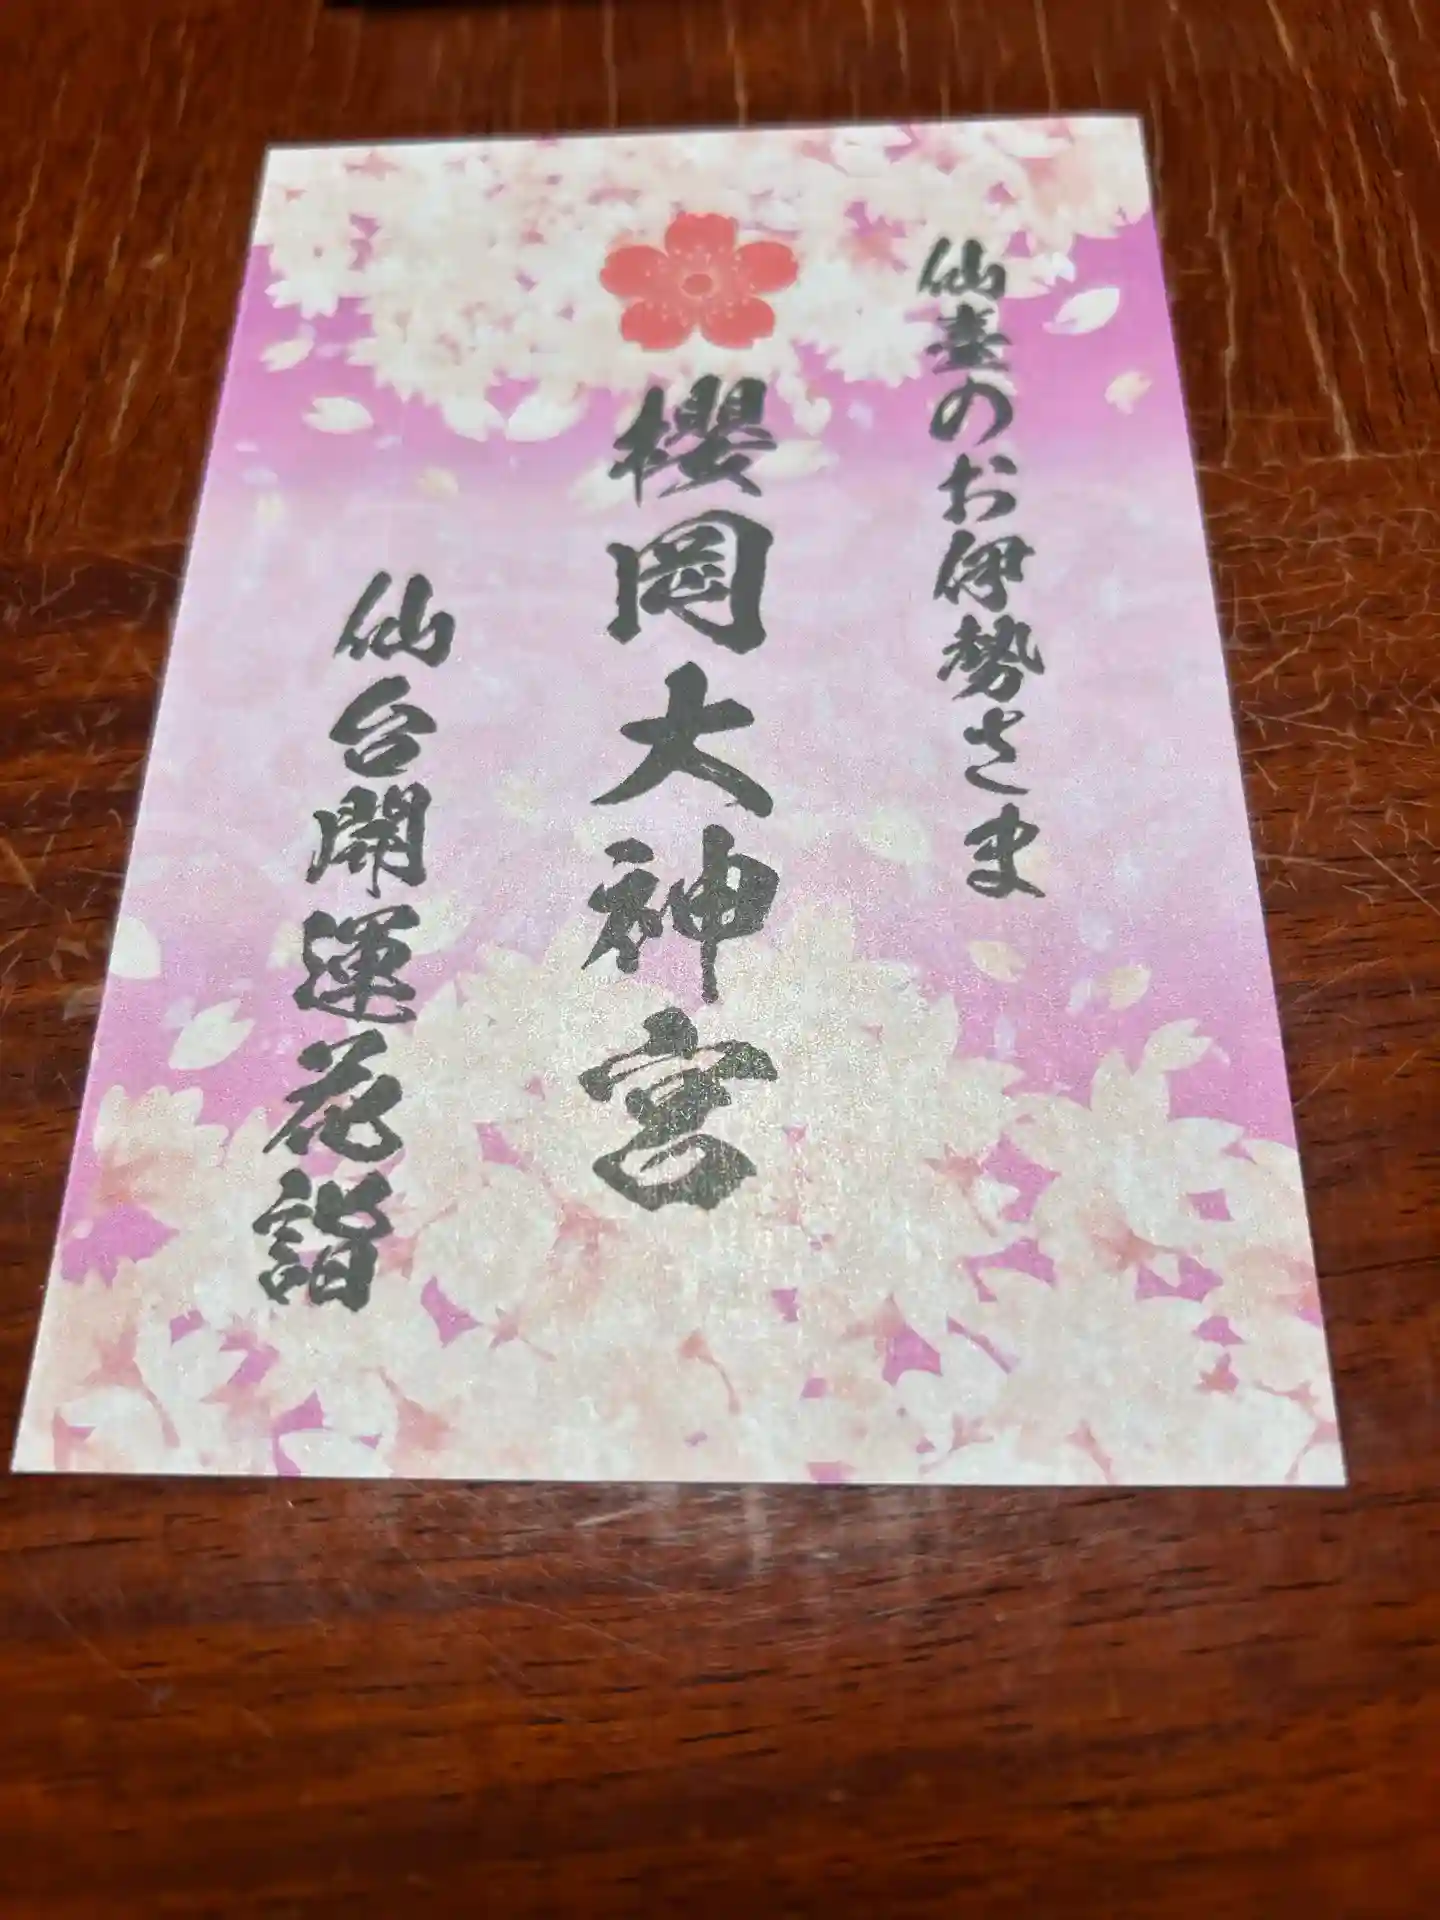 仙臺のお伊勢さま
櫻岡大神宮
仙台開運花詣